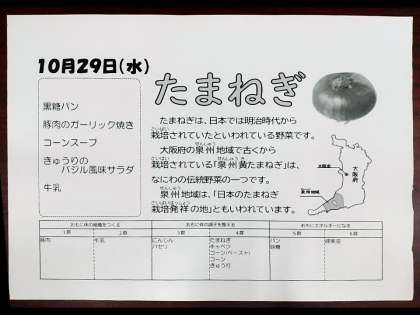 10月29日(水)
たまねぎ
黒糖パン
豚肉のガーリック焼き
コーンスープ
きゅうりの
バジル風味サラダ
牛乳
たまねぎは、日本では明治時代から
栽培されていたといわれている野菜です。
大阪府の泉州地域で古くから
栽培されている「泉州黄たまねぎ」は、
なにわの伝統野菜の一つです。
泉州地域は、「日本のたまねぎ
栽培発祥の地」ともいわれています。
大阪市
大阪府
泉州地域
おもに体の組織をつくる
おもに体の調子を整える
おもにエネルギーになる
1群
2群
3群
4群
5群
6群
豚肉
牛乳
にんじん
パセリ
たまねぎ
キャベツ
コーン(ペースト)
コーン
きゅうり
パン